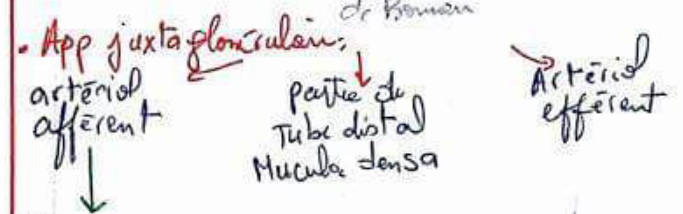 de Bowman
• App juxtaglomérulaire:
artériol
afférent
partie de
Tube distal
Mucula densa
Artériol
efférent